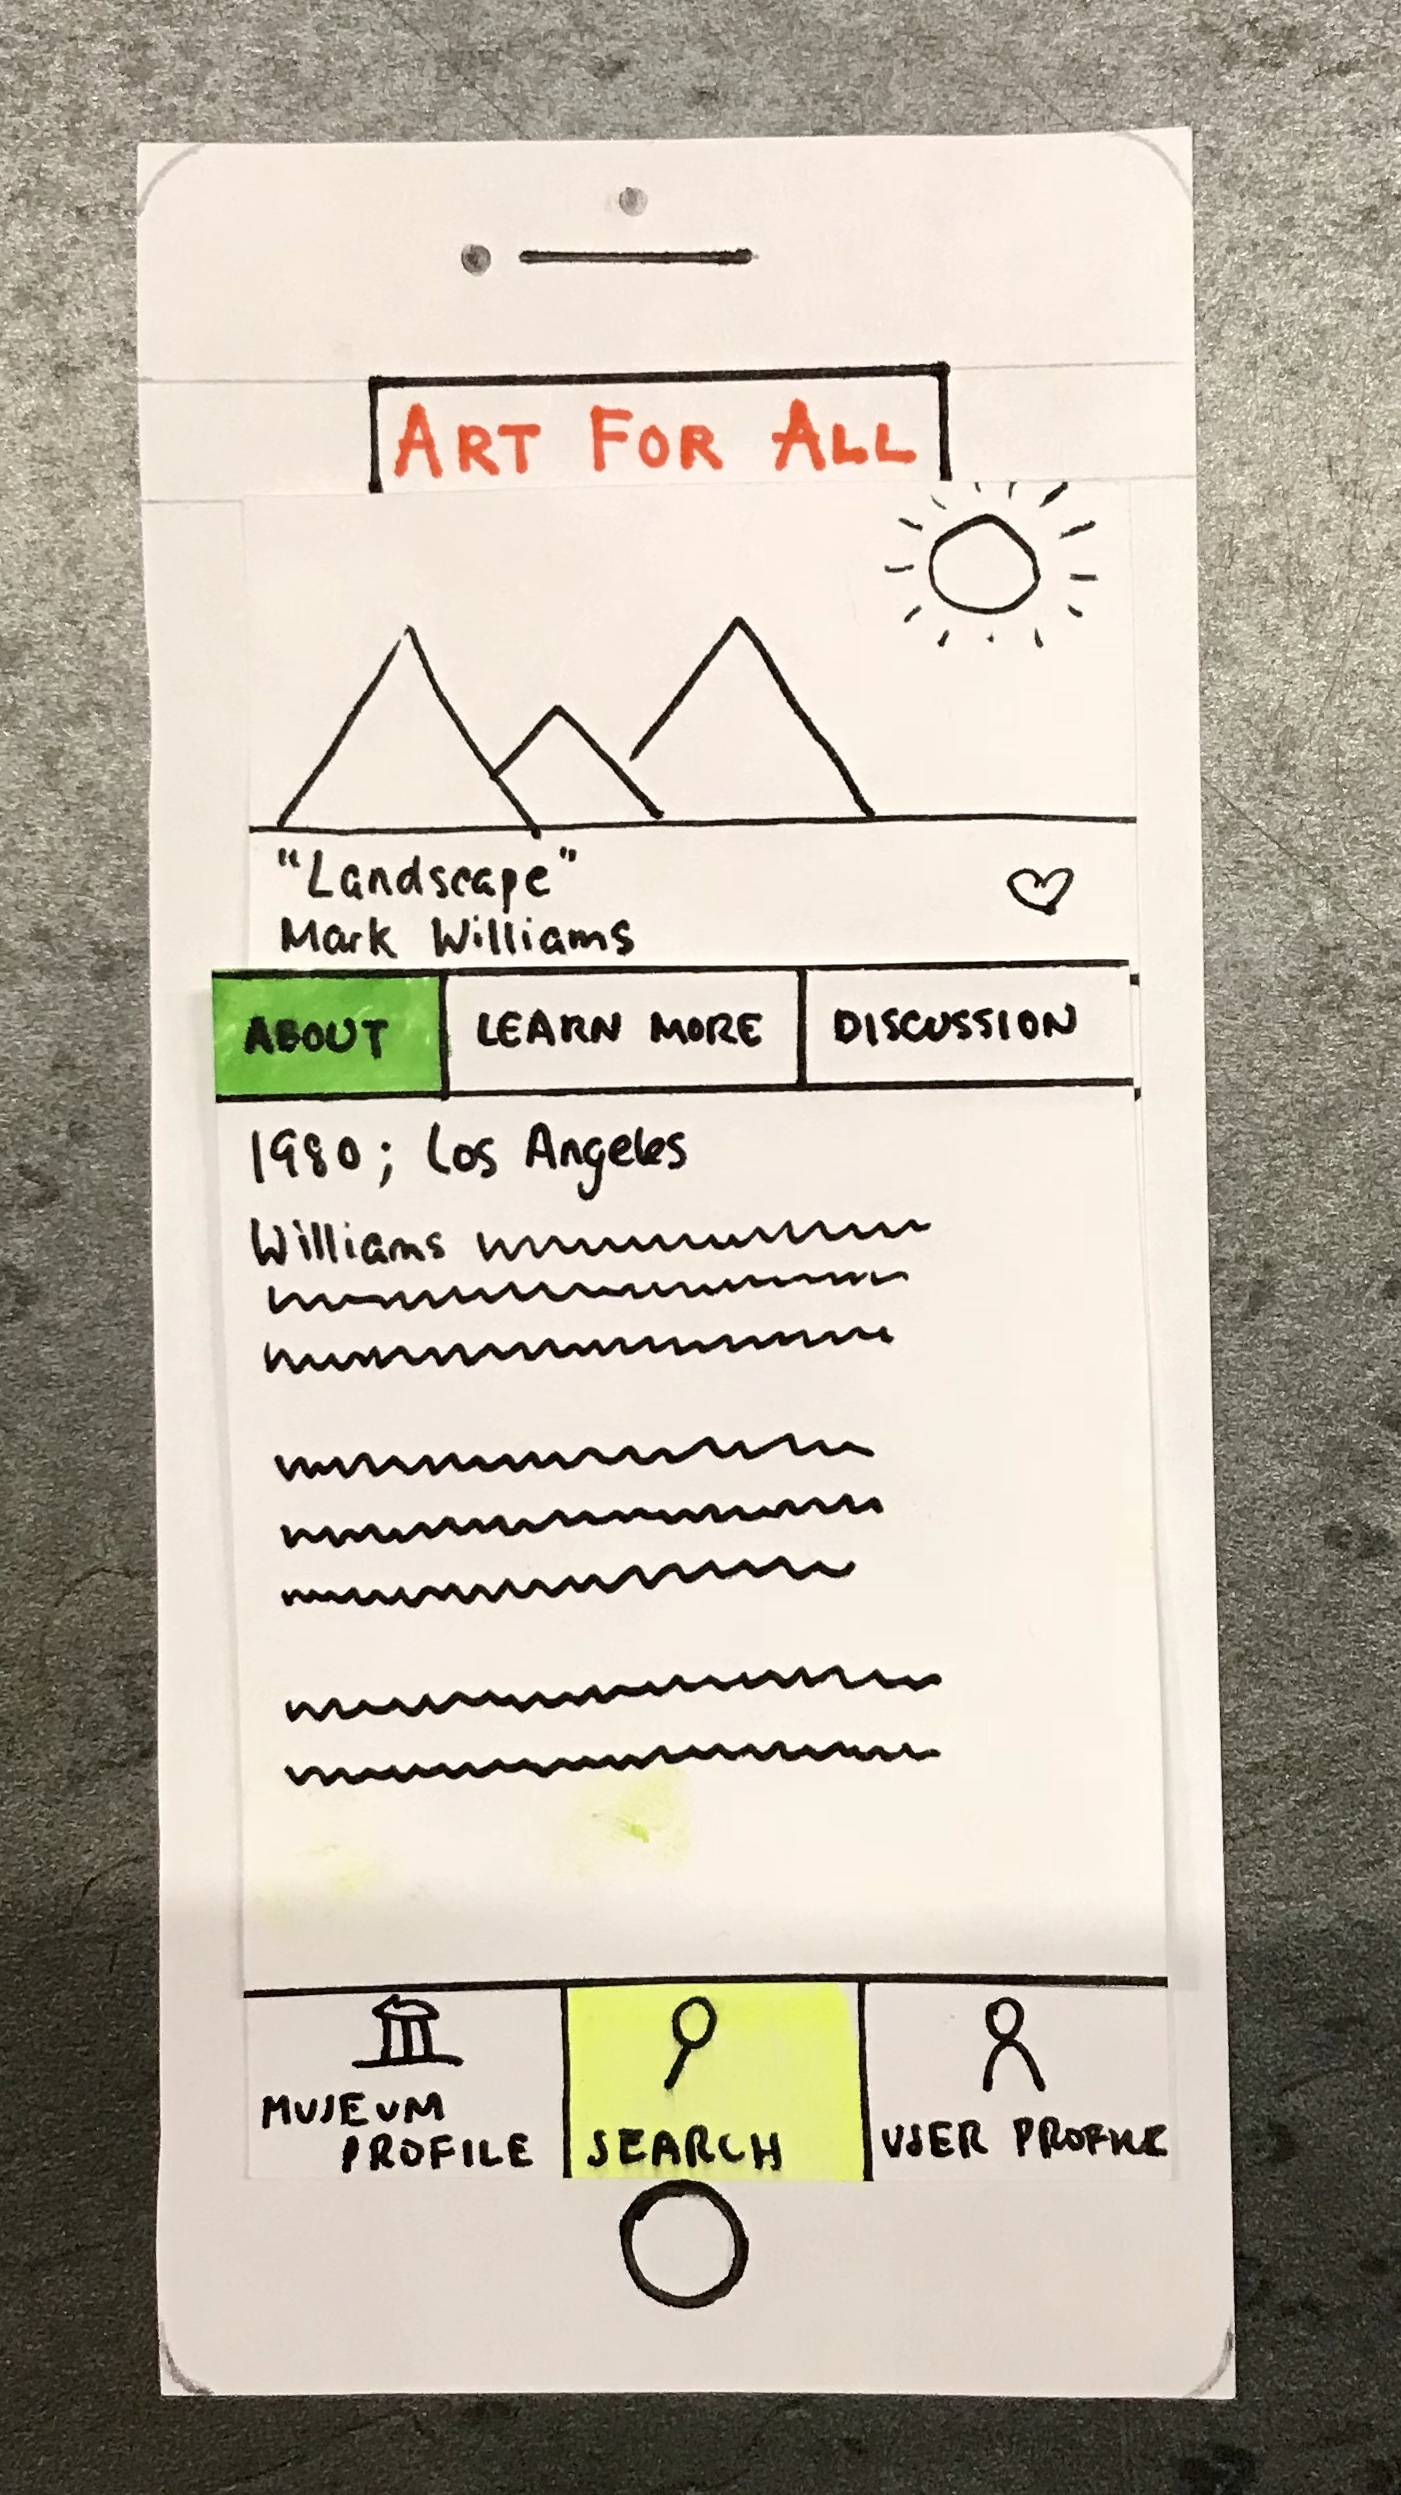 ART FOR ALL
"Landscape"
Mark Williams
ABOUT LEARN MORE DISCUSSION
1980; Los Angeles
Williams
MUSEUM
PROFILE
SEARCH
USER PROFILE